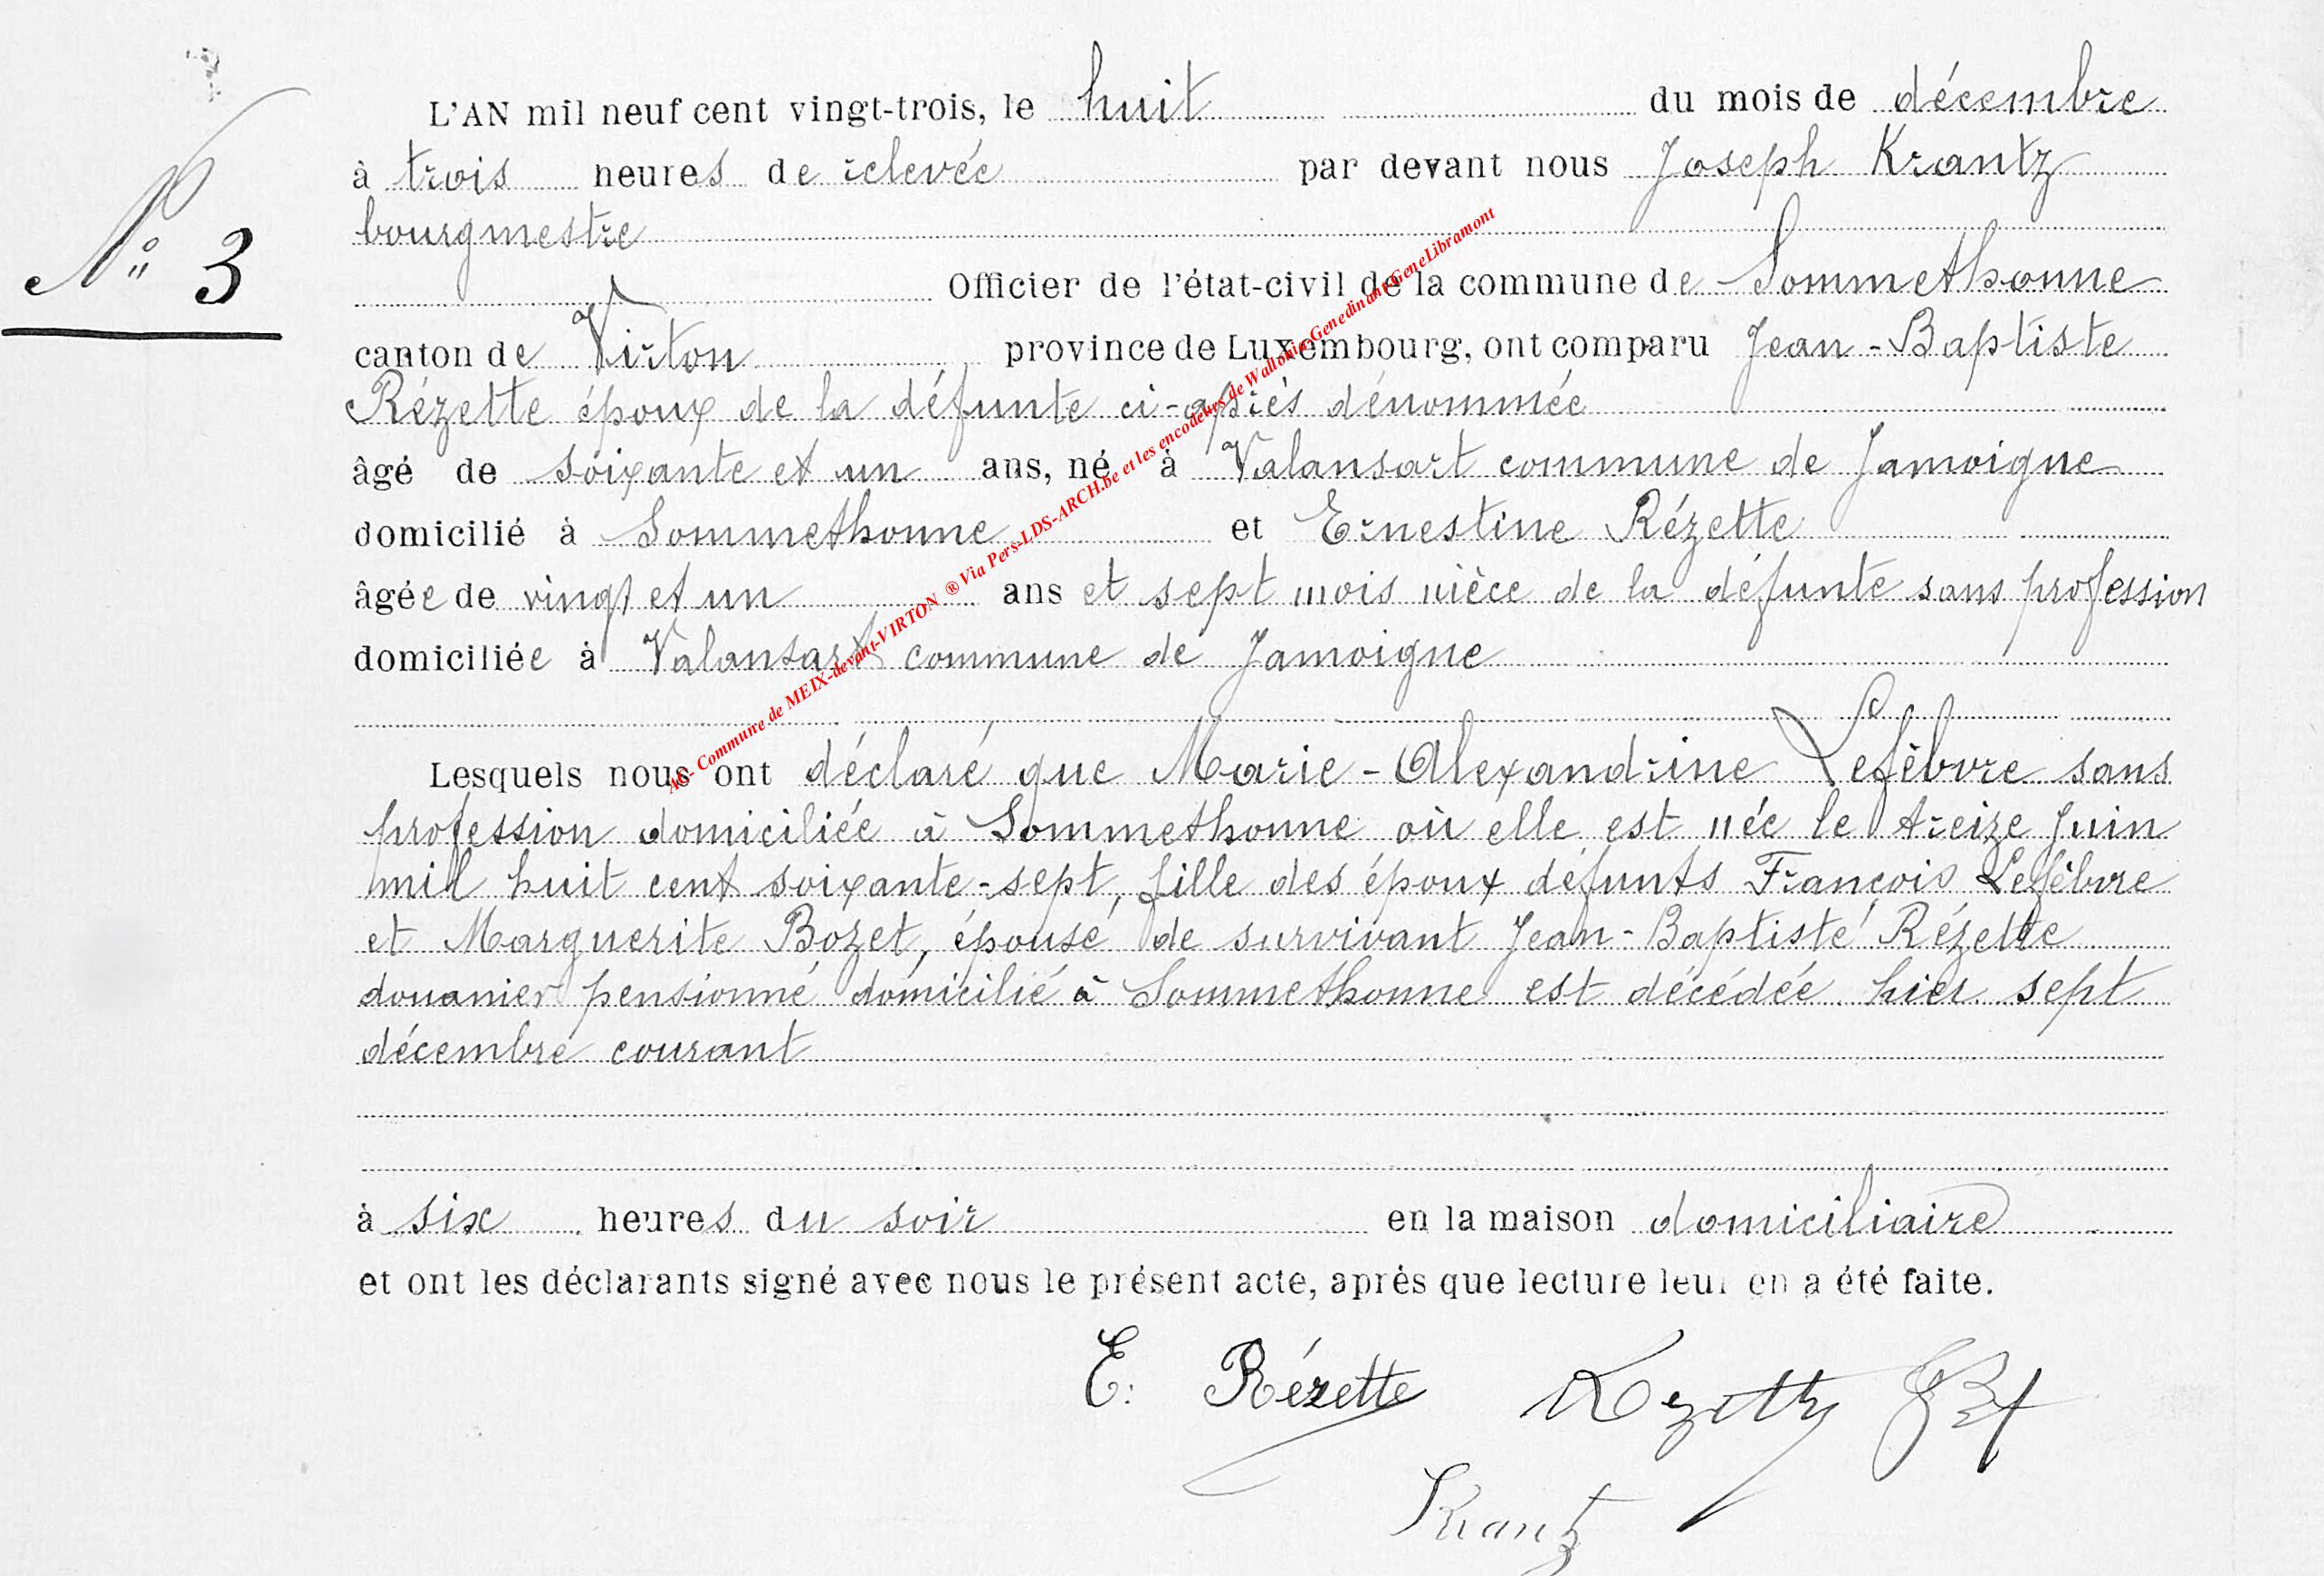 N° 3
L'AN mil neuf cent vingt-trois, le huit du mois de décembre
à trois heures de relevée par devant nous Joseph Krantz
bourgmestre
Officier de l'état-civil de la commune de Sommethonne
canton de Virton province de Luxembourg, ont comparu Jean-Baptiste
Rézette époux de la défunte ci-après dénommée
âgé de soixante et un ans, né à Valansart commune de Jamoigne
domicilié à Sommethonne et Ernestine Rézette
âgée de vingt et un ans et sept mois nièce de la défunte sans profession
domiciliée à Valansart commune de Jamoigne
Lesquels nous ont déclaré que Marie-Alexandrine Lefèbvre sans
profession domiciliée à Sommethonne où elle est née le treize Juin
mil huit cent soixante-sept, fille des époux défunts François Lefèbvre
et Marguerite Bozet, épouse de survivant Jean-Baptiste Rézette
douanier pensionné domicilié à Sommethonne est décédée hier sept
décembre courant
à six heures du soir en la maison domiciliaire
et ont les déclarants signé avec nous le présent acte, après que lecture leur en a été faite.
E. Rézette Rezette JBt
Krantz
AC- Commune de MEIX-devant-VIRTON ® Via Pers-LDS-ARCH.be et les encodeurs de Wallonia-Genedinant-GeneLibramont